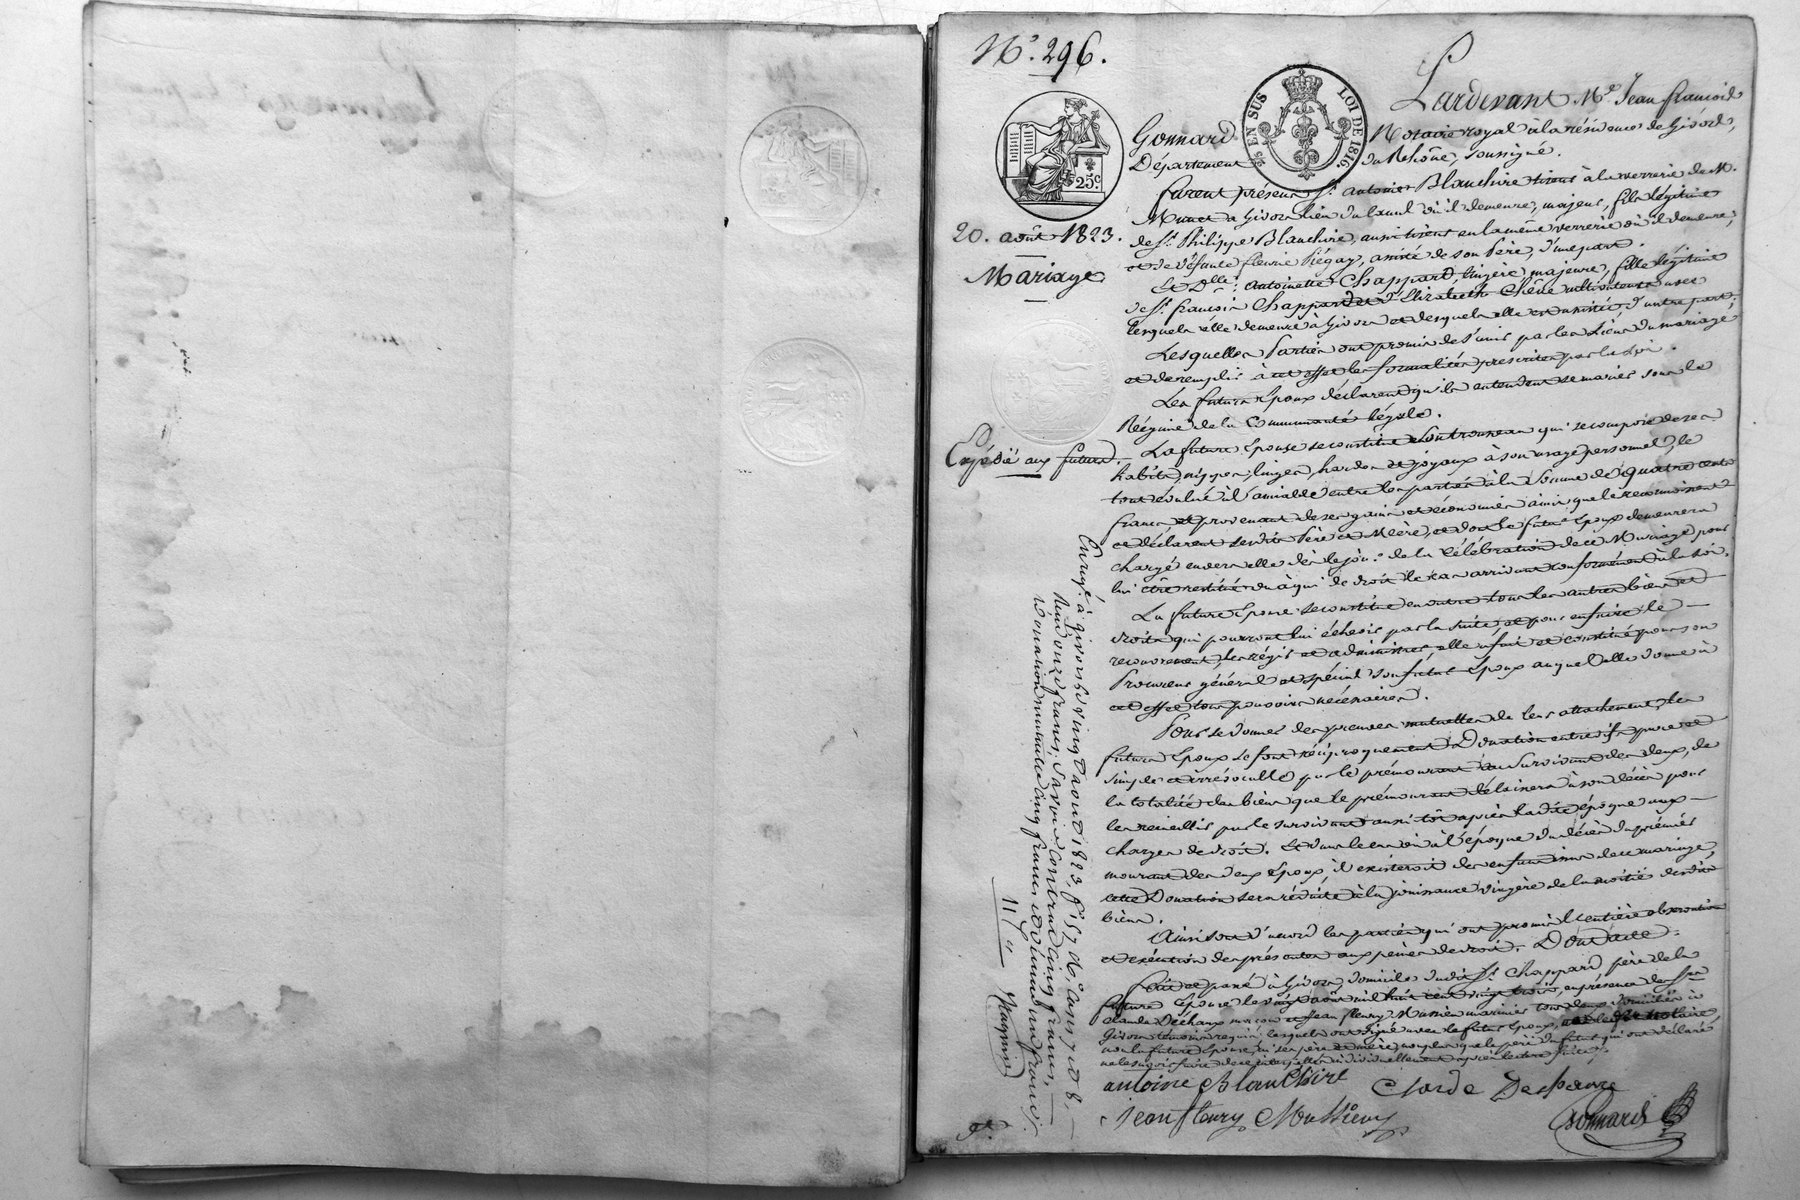 N.° 296.
EN SUS LOI DE 1816.
25.c
20. août 1823.
Mariage
Expédié aux futurs.
Pardevant M.e Jean françois
Gonnard Notaire royal à la résidence de Givors,
Département du Rhône, soussigné.
furent présens S.r Antoine Blanchire tireur à la verrerie de M.
à Givors lieu du canal où il demeure, majeur, fils légitime
de S.r Philippe Blanchire, aussi tireur en la même verrerie où il demeure,
et de défunte fleurie Piégay, assisté de son Père, d'une part.
Et D.lle Antoinette Chappard, lingère, majeure, fille légitime
de S.r françois Chappard et d'Elizabeth Chêne cultivateurs avec
lesquels elle demeure à Givors et desquels elle est assistée, d'autre part;
Lesquelles Parties ont promis de s'unir par les Liens du mariage
et de remplir à cet effet les formalités prescrites par la Loi.
Les futurs époux déclarent qu'ils entendent se marier sous le
Régime de la Communauté légale.
La future Epouse se constitue son trousseau qui se compose de ses
habits, nippes, linges, hardes et joyaux à son usage personnel, le
tout évalué à l'amiable entre les parties à la Somme de quatre cents
francs, et provenant de ses gains et économies ainsi que le reconnoissent
et déclarent sesdits Père et Mère, et dont le futur Epoux demeurera
chargé envers elle dès le jour de la Célébration de ce Mariage pour
lui être restitué ou à qui de droit le cas arrivant conformément à la Loi.
La future Epouse se constitue en outre tous les autres biens et
droits qui pourront lui échoir par la suite, et pour en faire le
recouvrement, les régir et administrer, elle a fait et constitué pour son
Procureur général et spécial son futur Epoux auquel elle donne à
cet effet tous pouvoirs nécessaires.
Pour se donner des preuves mutuelles de leur attachement, les
futurs Epoux se font réciproquement Donation entrevifs pure et
simple et irrévocable par le prémourant au Survivant des deux, de
la totalité des biens que le prémourant délaissera à son décès pour
les recueillir par le survivant aussi tôt après ladite époque aux
charges de droit. Et dans le cas où à l'époque du décès du prémier
mourant des deux Epoux, il existeroit des enfans issus de ce mariage,
cette Donation sera réduite à la jouissance viagère de la moitié desdits
biens.
Ainsi sont d'accord les parties qui ont promis l'entière observation
et exécution des présentes aux peines de droit. Dont acte.
Fait et passé à Givors, domicile dudit S.r Chappard, père de la
future Epouse le vingt août mil huit cent vingt trois, en présence de S.rs
Claude Déchaux maçon et Jean fleury Mussieu marinier tous deux domiciliés à
Givors témoins requis, lesquels ont signé avec le futur Epoux, et le notaire,
non la future Epouse, ni ses père et mère, non plus que le père du futur qui ont déclaré
ne le savoir faire de ce interpellés individuellement après lecture faite.
antoine Blanchire
jean fleury Mussieux
Gonnard
Enreg.é à givors le vingt aout 1823, f.° 57
Reçu onze francs, savoir: contrat cinq francs,
donation mutuelle cinq francs et décime un franc.
11 f "